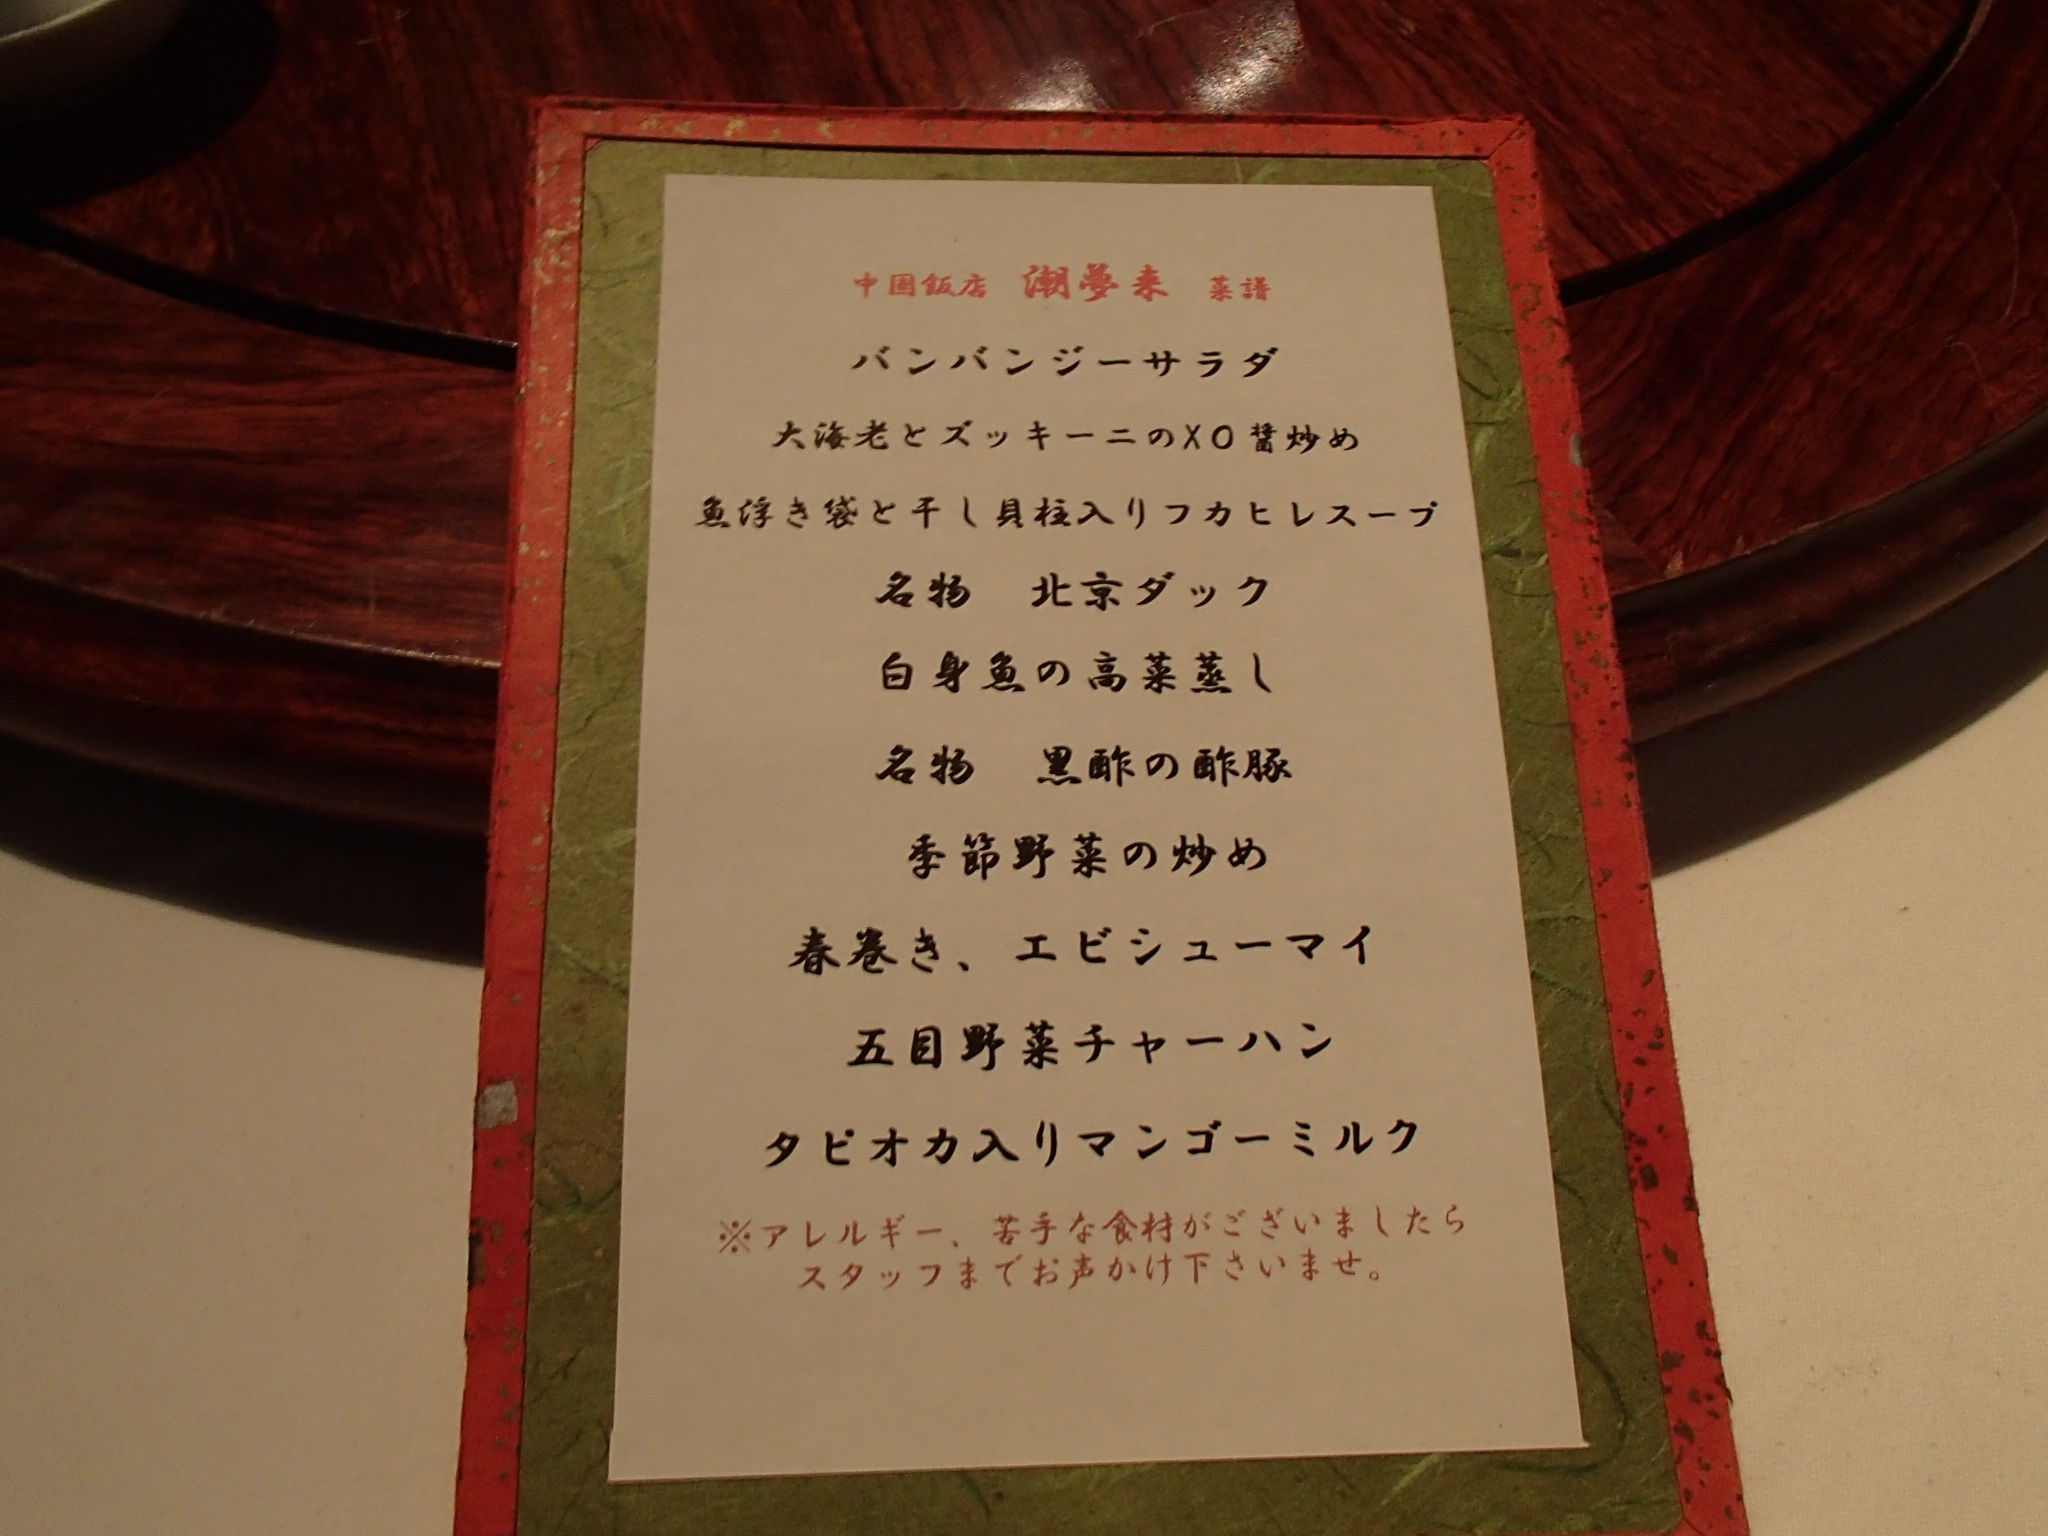 中国飯店 潮夢来 菜譜
バンバンジーサラダ
大海老とズッキーニのXO醤炒め
魚浮き袋と干し貝柱入りフカヒレスープ
名物 北京ダック
白身魚の高菜蒸し
名物 黒酢の酢豚
季節野菜の炒め
春巻き、エビシューマイ
五目野菜チャーハン
タピオカ入りマンゴーミルク
※アレルギー、苦手な食材がございましたら
スタッフまでお声かけ下さいませ。